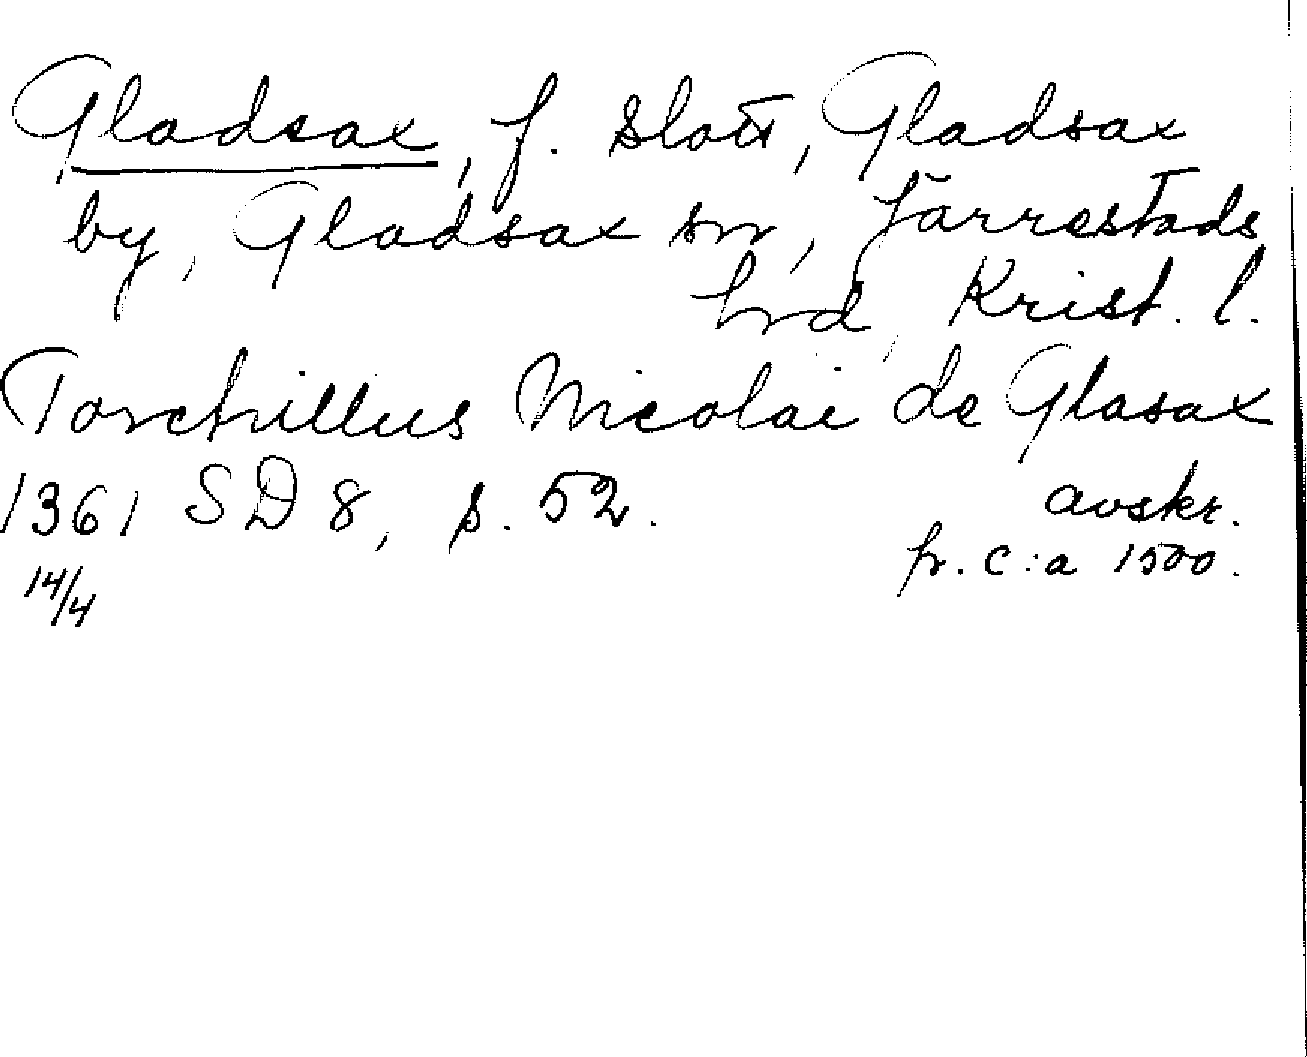 Gladsax, f. slott, Gladsax
by, Gladsax sn, Järrestads
hd, Krist. l.
Torchillus Nicolai de Glasax
1361 SD 8, s. 52. avskr.
fr. c:a 1500.
14/4